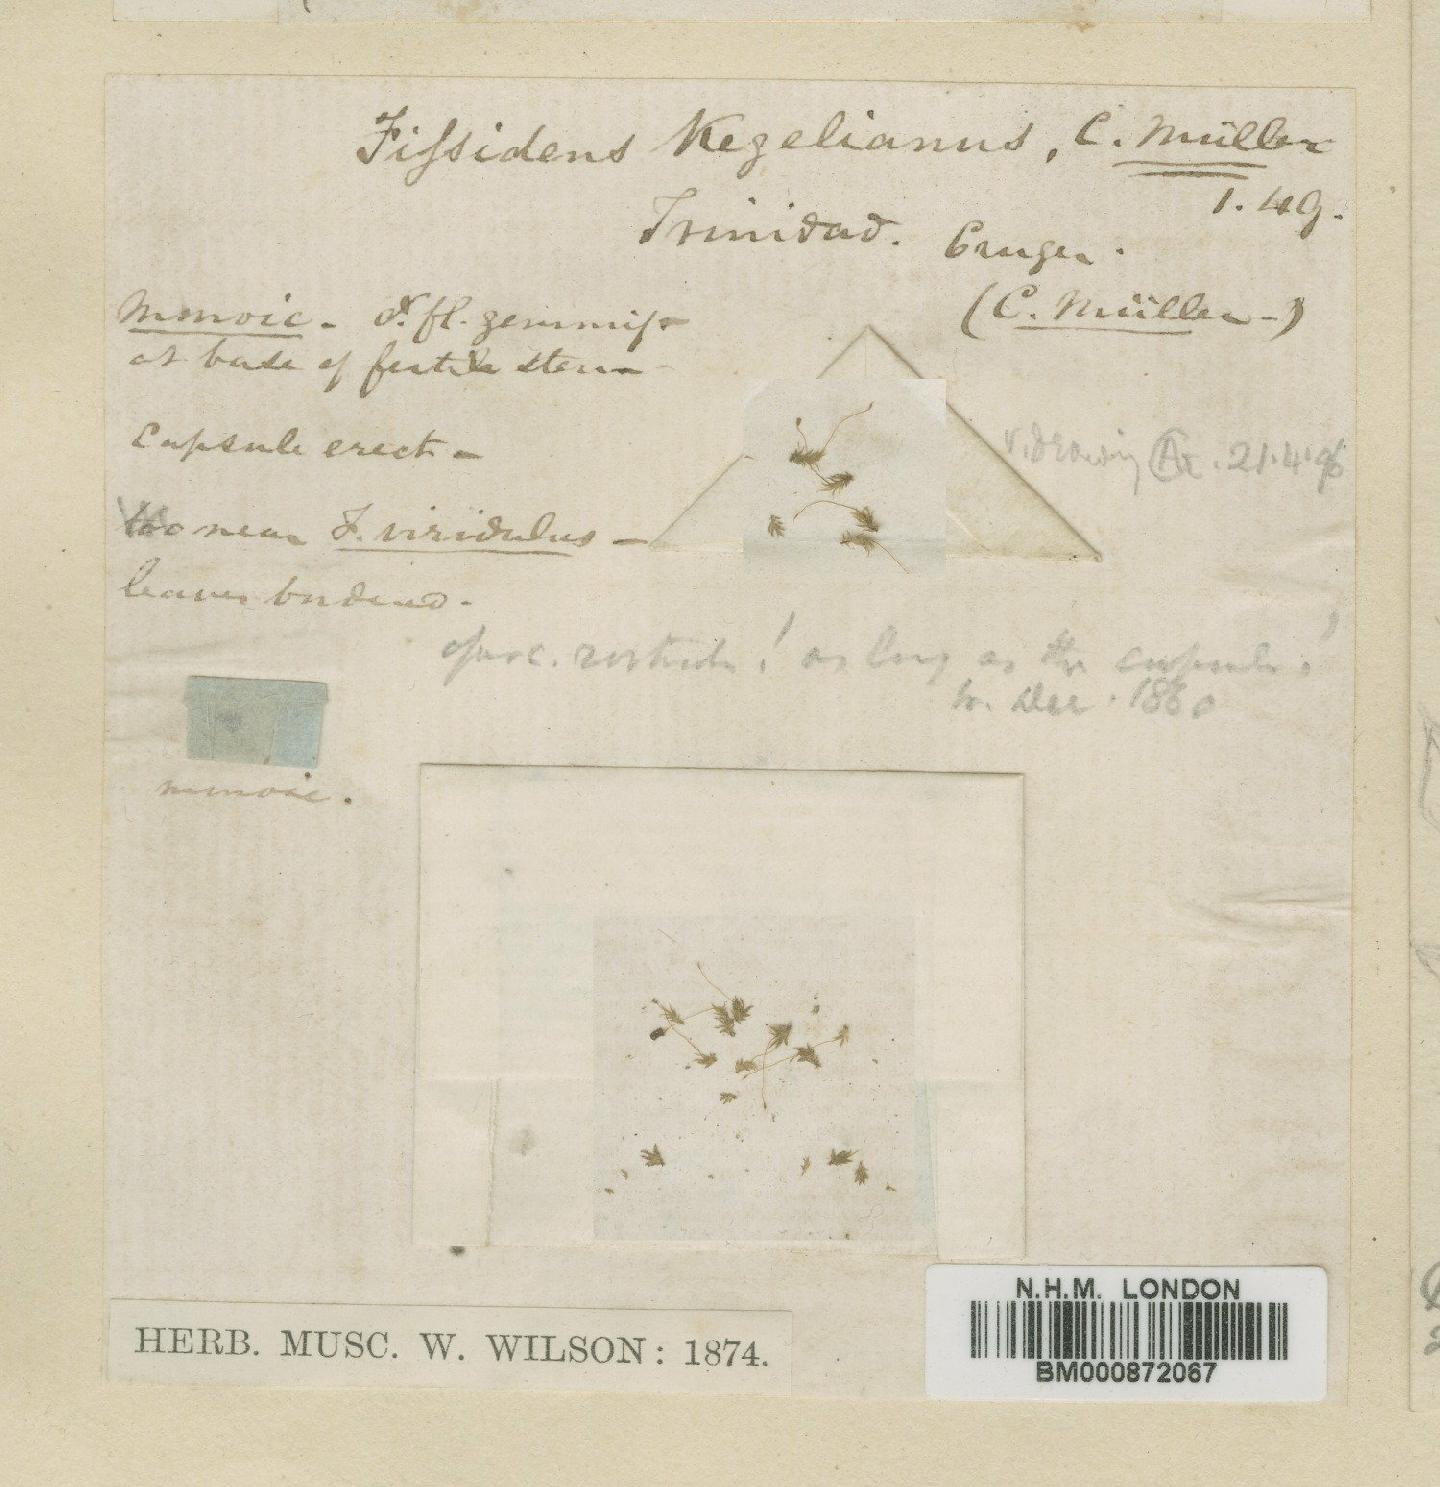 Fissidens Kegelianus, C. Müller
1. 49.
Trinidad. Cruger.
(C. Müller)
Monoic. ♂. fl. gemmif
at base of fertile stem
Capsule erect
too near F. viridulus
leaves bordered.
v. drawing 21.4.96
operc. rostrate! as long as the capsule!
W. Dec. 1860
monoic.
HERB. MUSC. W. WILSON: 1874.
N.H.M. LONDON
BM000872067